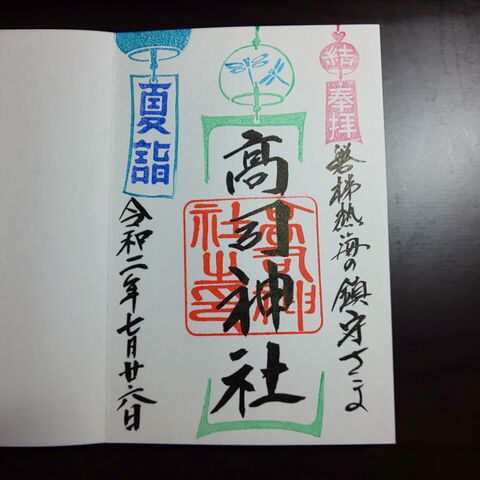 結
奉拝
磐梯熱海の鎮守さま
高司神社
高司神
社之印
夏詣
令和二年七月廿六日